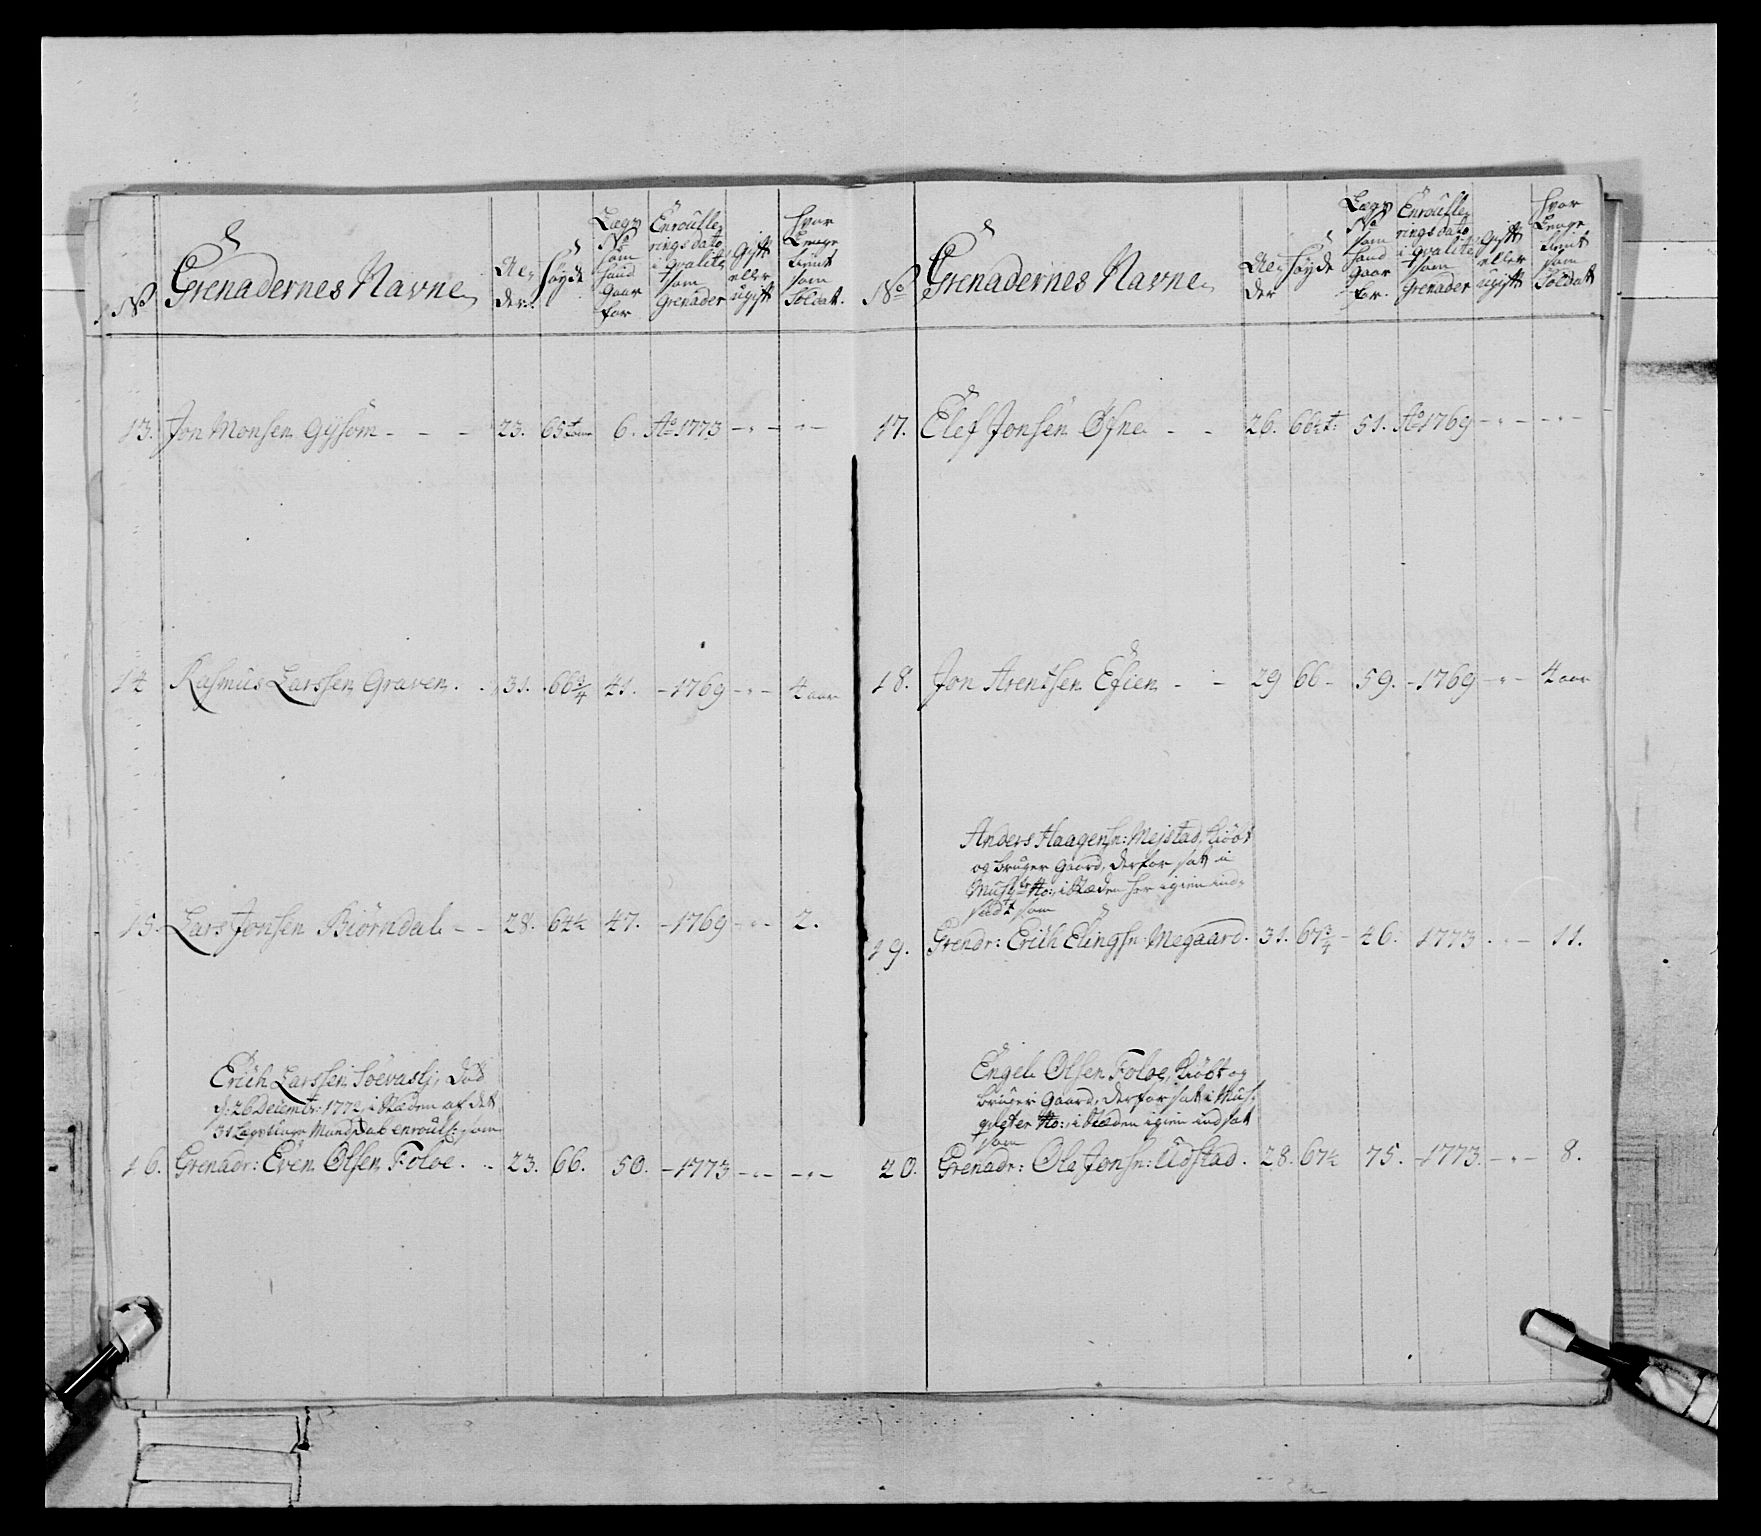 No Grenadernes Navne Al- der. Høyde Lægs No som hand gaar for Enroulle- rings dato i qvalite som Grenader Gift eller ugift hvor Lenge tient som Soldat.
13. Jon Monsen Gysom - - - 23. 65 6. Ao 1773 - " - " -
14 Rasmus Larssen Graven. . 31. 66 3/4 41. - 1769 - " - 4 aar
15. Lars Jonsen Biörndal - - 28. 64 1/2 47. - 1769 - " - 2.
Erich Larssen Soevasli, død
d: 26 Decembr: 1772, i Stæden af det
31 Lægs unge Mandskab enroull: som
16. Grenadr: Even Olsen Foloe. . 23. 66. 50. - 1773 - " - - " -
No Grenadernes Navne Al- der Høyde Lægs No som hand gaar for. Enroulle- rings dato i qvalite som Grenader Gift eller ugift hvor Lenge tient som Soldat
17. Elef Jonsen Øfne - - 26. 66 1/2 t: 51. Ao 1769 - " - - " -
18. Jon Arentsen Efien - - 29 66 - 59. - 1769 - " - 4 aar
Anders Haagensn: Mejstad, kiöbt
og bruger Gaard, derfor sat i
Musqtr Ko:, i Stæden her igien ind-
sadt som
19. Grendr: Erich Elingsn Megaard. 31. 67 3/4 - 46. 1773 . " - 11.
Engel Olsen Foloe, kiöbt og
bruger Gaard, derfor sat i Mus-
qveter Ko:, i Stæden igien indsat
som
20. Grenadr: Ola Jonsn: Udstad. 28. 67 1/2 75. - 1773. - " - 8.